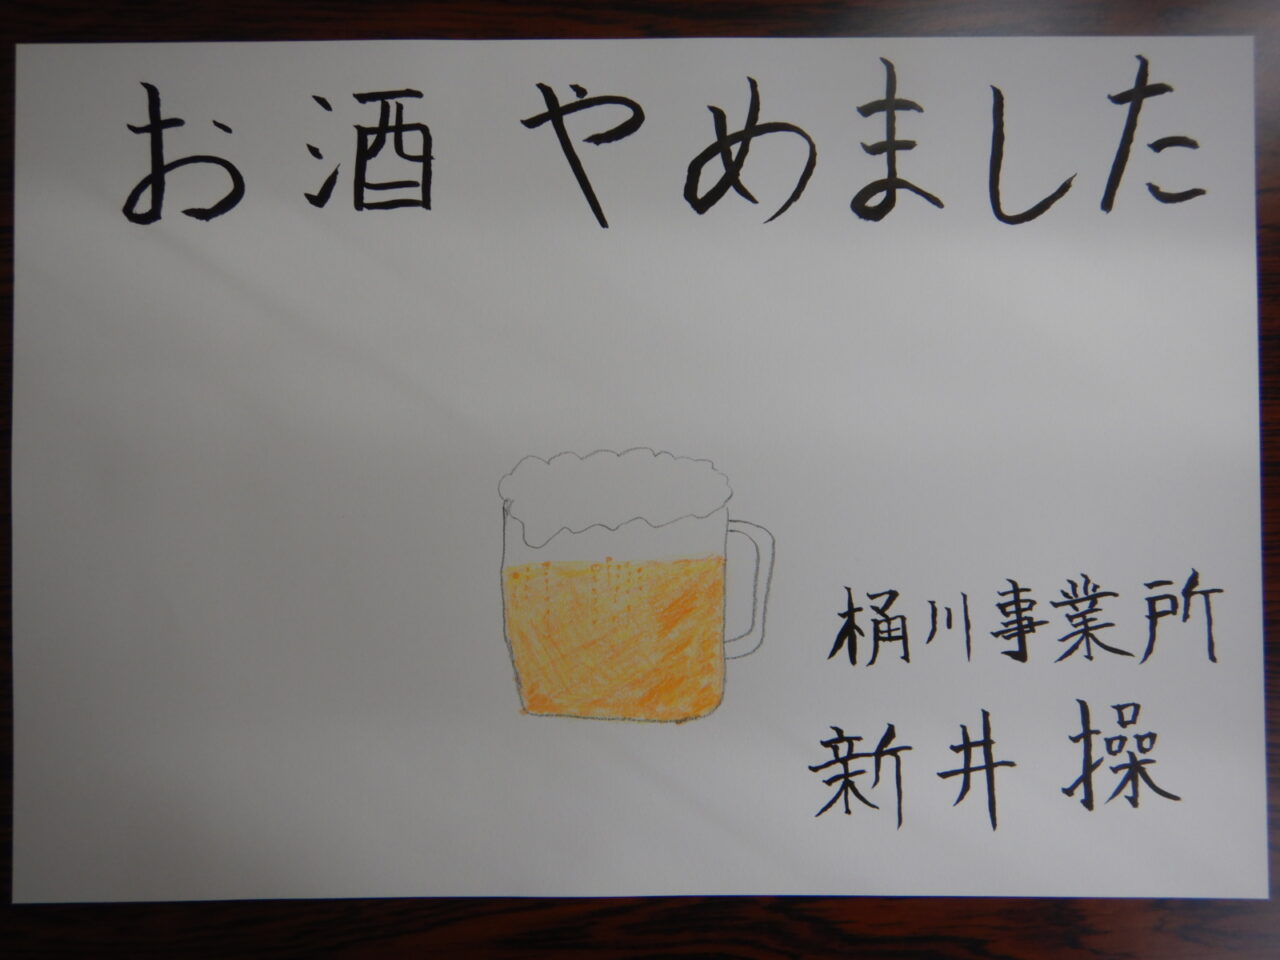 お酒やめました
桶川事業所
新井操